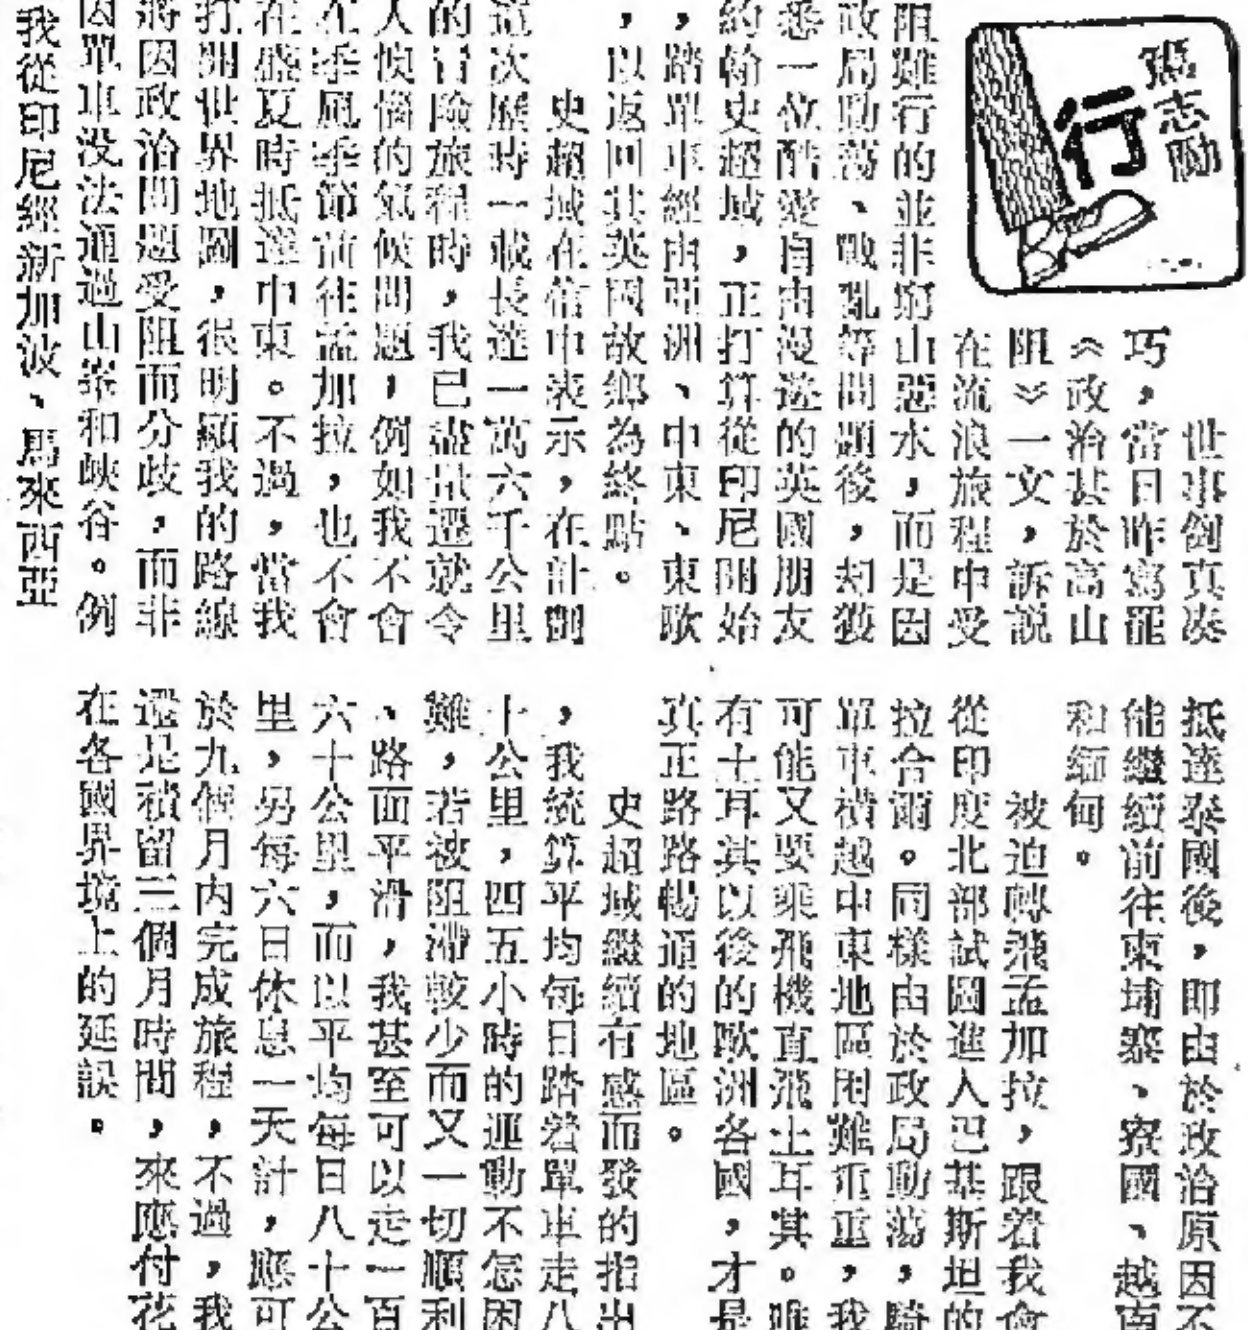 行
世事倒真湊
巧，當日昨寫罷
《政治甚於高山
阻》一文，訴説
在流浪旅程中受
阻難行的並非窮山惡水，而是因
政局動蕩、戰亂等問題後，却獲
悉一位酷愛自由漫遊的英國朋友
約翰史超域，正打算從印尼開始
，踏單車經由亞洲、中東、東歐
，以返回其英國故鄉為終點。
史超域在信中表示，在計劃
這次歷時一載長達一萬六千公里
的冒險旅程時，我已盡量遷就令
人懊惱的氣候問題，例如我不會
在季風季節前往孟加拉，也不會
在盛夏時抵達中東。不過，當我
打開世界地圖，很明顯我的路線
將因政治問題受阻而分歧，而非
因單車没法通過山巒和峽谷。例
我從印尼經新加坡、馬來西亞
抵達泰國後，即由於政治原因不
能繼續前往柬埔寨、寮國、越南
和緬甸。
被迫轉飛孟加拉，跟着我會
從印度北部試圖進入巴基斯坦的
拉合爾。同樣由於政局動蕩，騎
單車橫越中東地區困難重重，我
可能又要乘飛機直飛土耳其。唯
有土耳其以後的歐洲各國，才是
真正路路暢通的地區。
史超域繼續有感而發的指出
，我統算平均每日踏着單車走八
十公里，四五小時的運動不怎困
難，若被阻滯較少而又一切順利
、路面平滑，我甚至可以走一百
六十公里，而以平均每日八十公
里，另每六日休息一天計，應可
於九個月内完成旅程，不過，我
還是積留三個月時間，來應付花
在各國界境上的延誤。